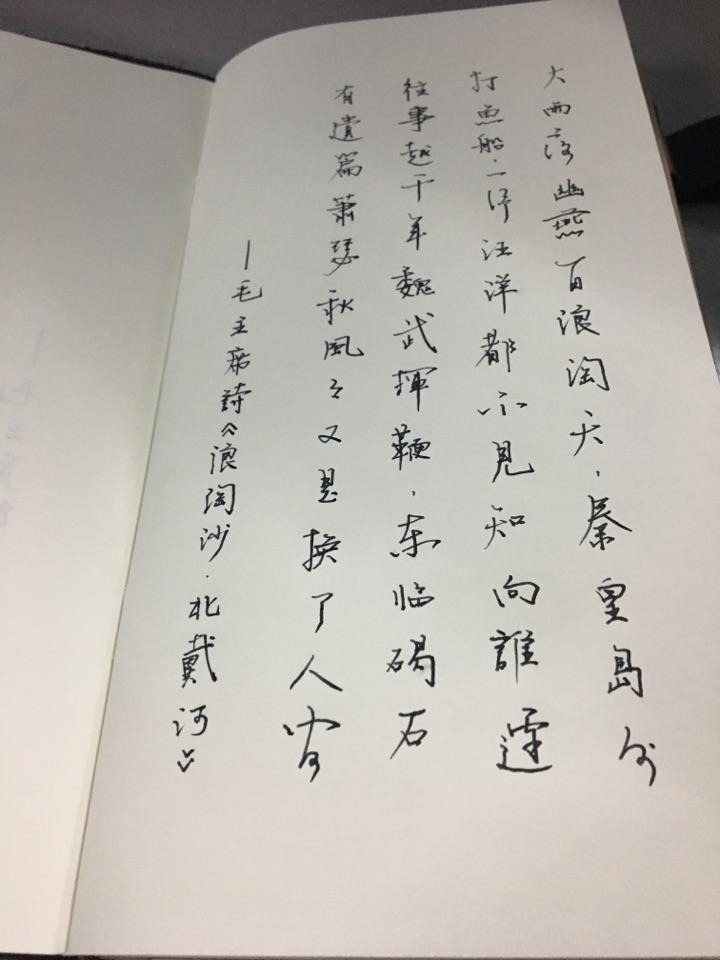 大雨落幽燕百浪淘天，秦皇島外
打魚船．一片汪洋都不見知向誰邊
往事越千年魏武揮鞭，东临碣石
有遺篇蕭瑟秋風今又是换了人间
—毛主席詩《浪淘沙·北戴河》